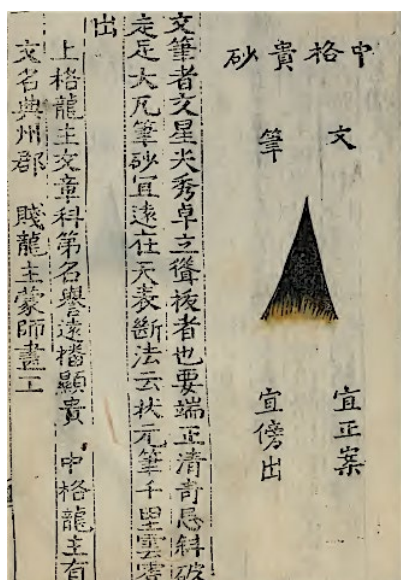 中格貴砂
文筆
宜正案
宜傍出
文筆者文星尖秀卓立聳拔者也要端正清奇忌斜破
走足大凡筆砂宜遠在天表斷法云狀元筆千里雲霄
出
上格龍主文章科第名譽遠播顯貴　中格龍主有
文名典州郡　賤龍主蒙師畫工